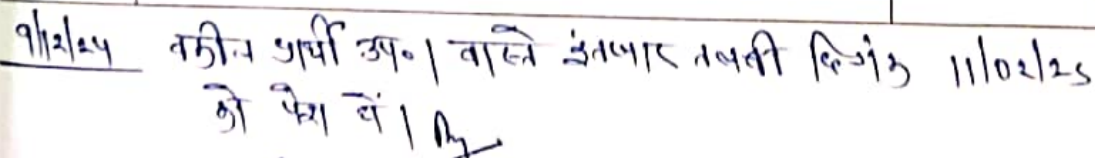 9/12/24 वकील प्रार्थी उप०। वास्ते इंतजार तलबी दिनांक 11/02/25
को पेश हों।